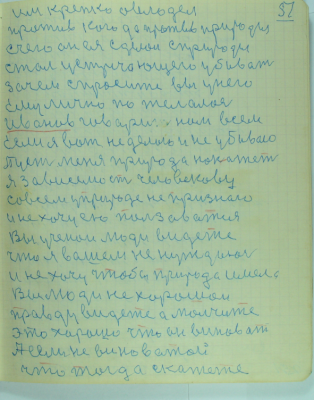 51
им крепко овлодел
против кого да против природы
с чего он ея сдвои с природи
стал устричающего убиват
зачем спросите вы у него
ему лично по желалоя
Иванов говари. нам всем
если я вот не делаю и не убываю
пуст меня природа накажет
я зависемост человекову
совсем у природе не признаю
и не хочу ею ползаватия
Вы ученои люди видете
что я вашем не нуждаюс
и не хочу чтобы природа имела
Вы люди не харошои
правду видете а молчите
это харошо что он виноват
А если не виноватой
что тогда скажете